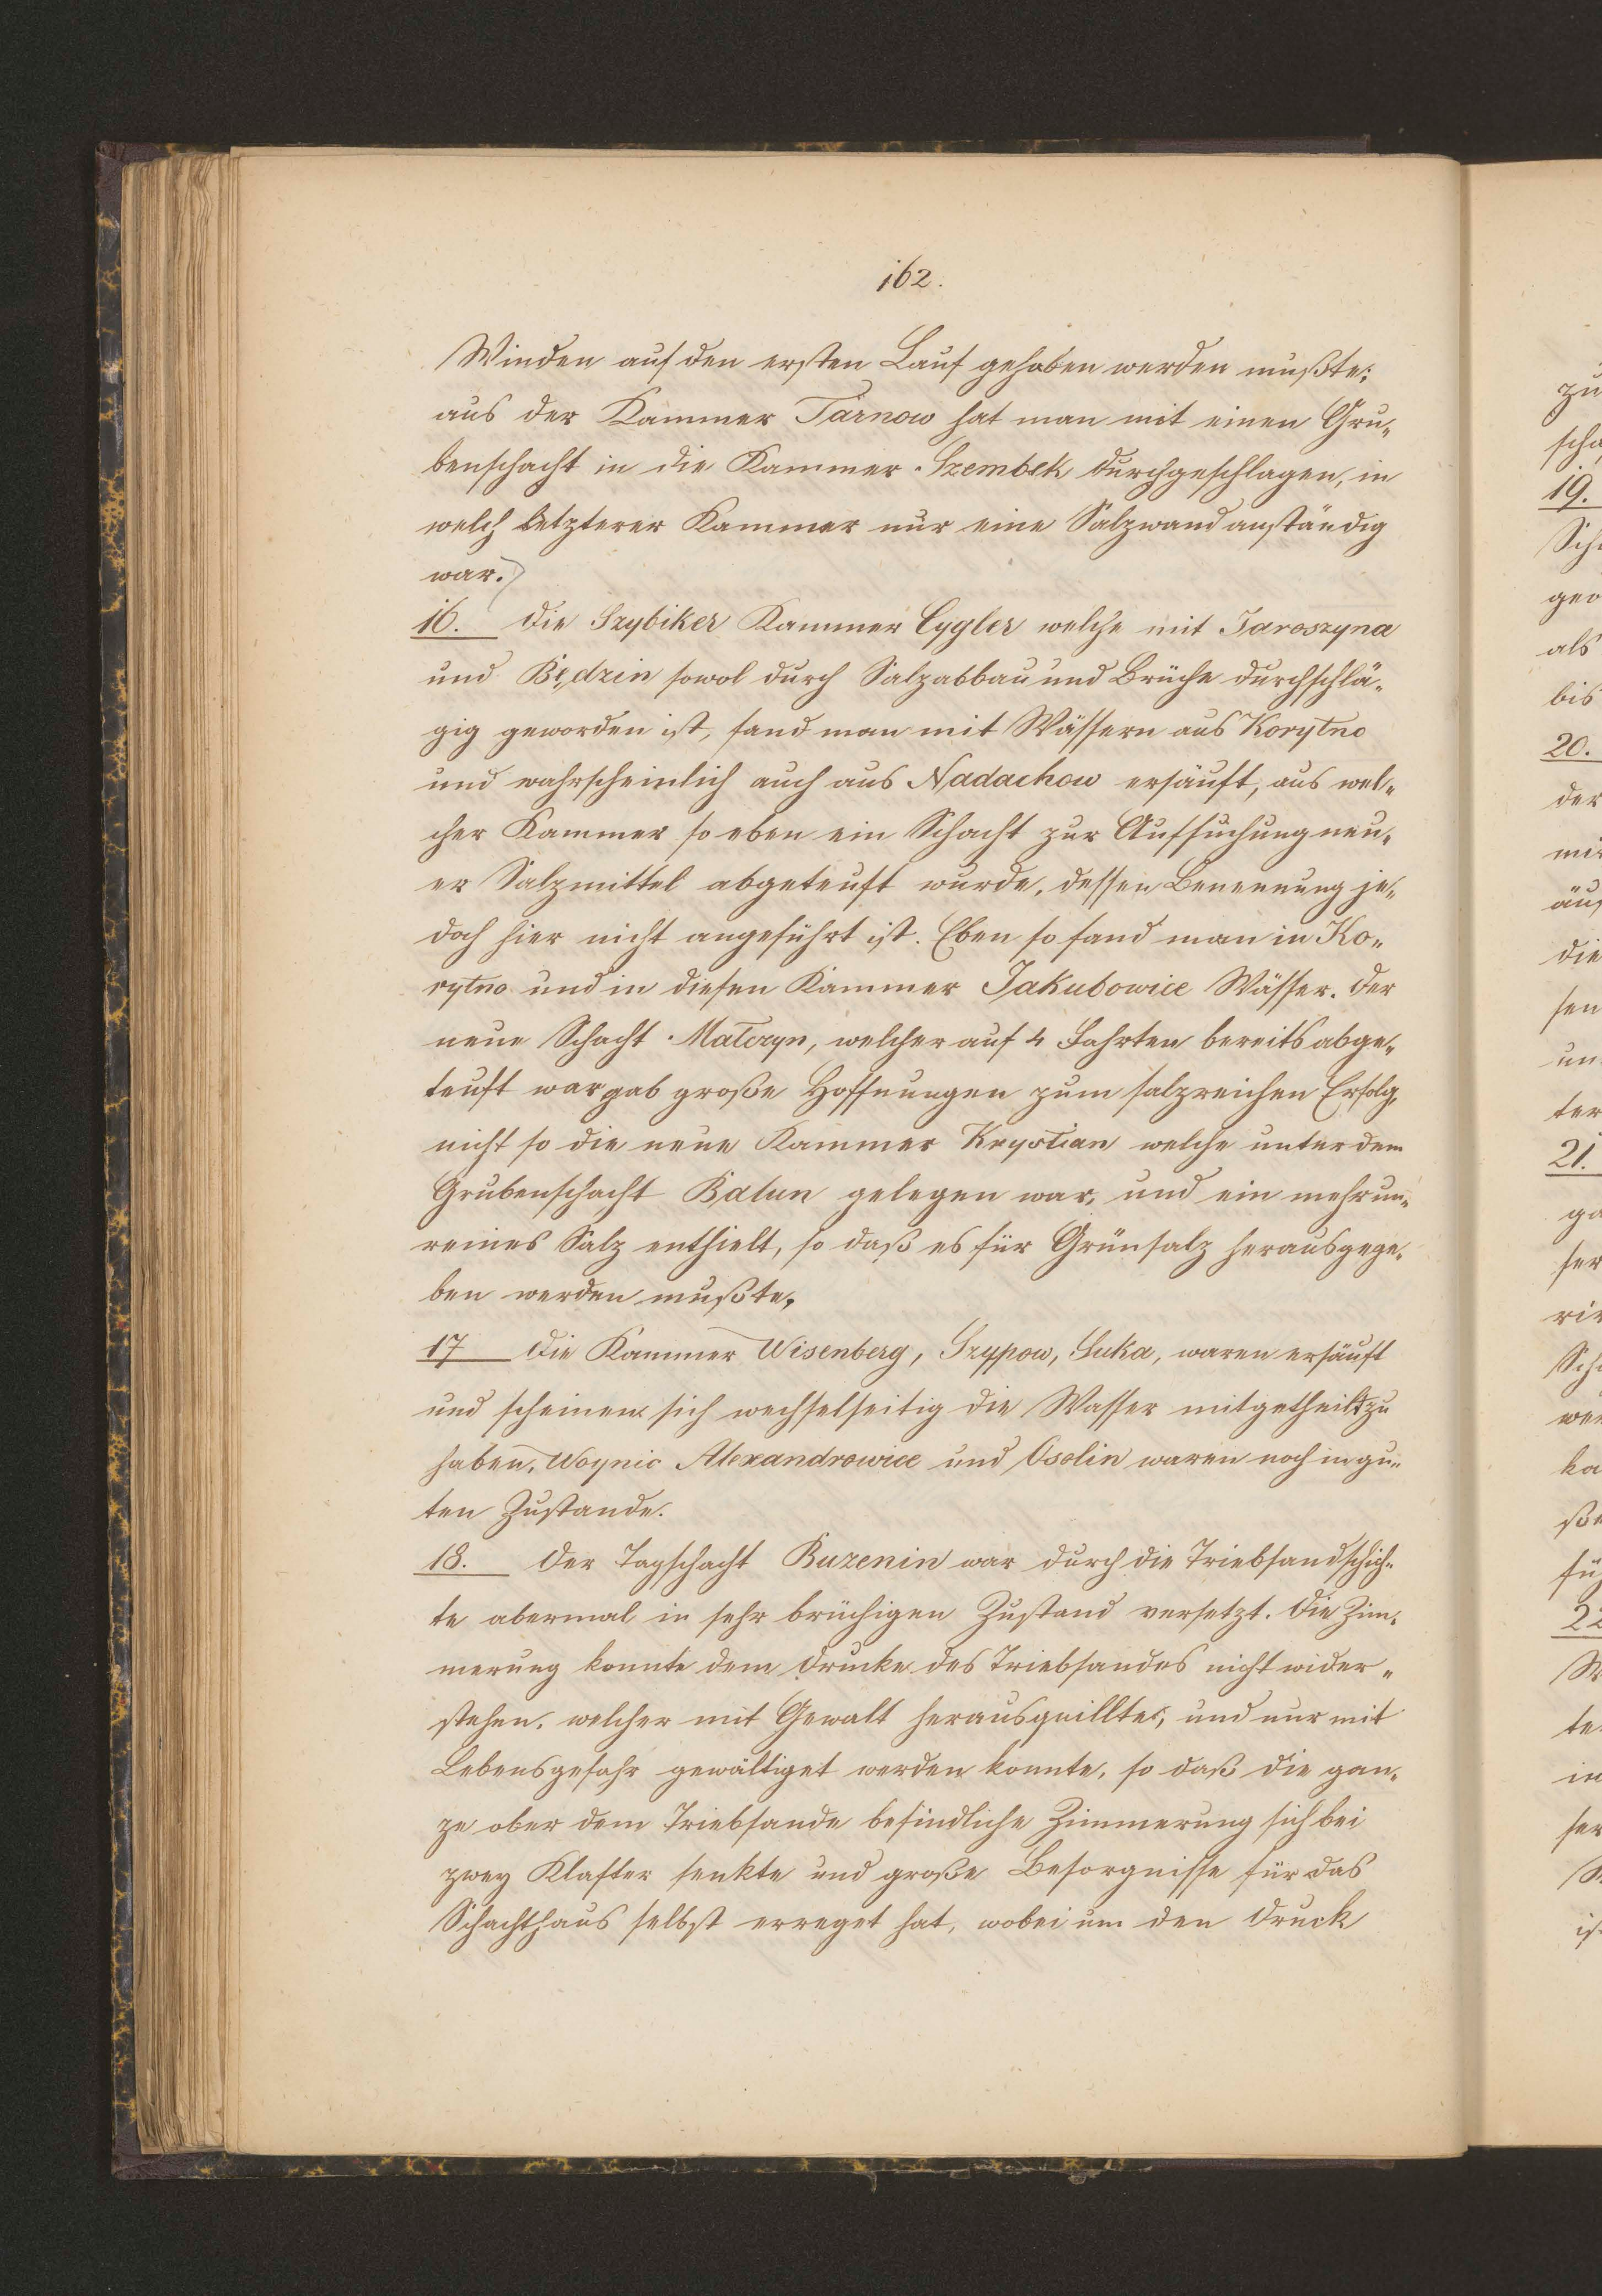 162.
Winden auf den ersten Lauf gehoben werden mußte;
aus der Kammer Tarnow hat man mit einen Gru„
benschacht in die Kammer Szembek durchgeschlagen, in
welch letzterer Kammer nur eine Salzwand anständig
war.
16. Die Szybiker Kammer Cygler welche mit Jaroszyna
und Będzin sowol durch Salzabbau und Brüche durchschlä„
gig geworden ist, fand man mit Wässern aus Korytno
und wahrscheinlich auch aus Nadachow ersäuft, aus wel„
cher Kammer so eben ein Schacht zur Aufsuchung neu„
er Salzmittel abgeteuft wurde, dessen Benennung je„
doch hier nicht angeführt ist. Eben so fand man in Ko„
rytno und in diesen Kammer Jakubowice Wässer. Der
neue Schacht Materzyn, welcher auf 4 Fahrten bereits abge„
teuft war gab große Hoffnungen zum salzreichen Erfolg,
nicht so die neue Kammer Krystian welche unter dem
Grubenschacht Balun gelegen war, und ein mehr un„
reines Salz enthielt, so daß es für Grünsalz herausgege„
ben werden mußte.
17 Die Kammer Wisenberg, Szypow, Suka, waren ersäuft
und scheinen sich wechselseitig die Wasser mitgetheilt zu
haben, Woynic Alexandrowice und Osolin waren noch in gu„
ten Zustande.
18. Der Tagschacht Buzenin war durch die Triebsandschich„
te abermal in sehr brüchigen Zustand versetzt. Die Zim„
merung konnte dem Drucke des Triebsandes nicht wider„
stehen, welcher mit Gewalt herausquillte, und nur mit
Lebensgefahr gewältiget werden konnte, so daß die gan„
ze ober dem Triebsande befindliche Zimmerung sich bei
zwey Klafter senkte und große Besorgnisse für das
Schachthaus selbst erreget hat, wobei um den Druck
zu
scha
19.
Sch
gew
als
bis
20.
der
mit
die
sen
un
ter
21.
ga
ser
Sch
wer
ka
ße
fü
22
te
in
ser